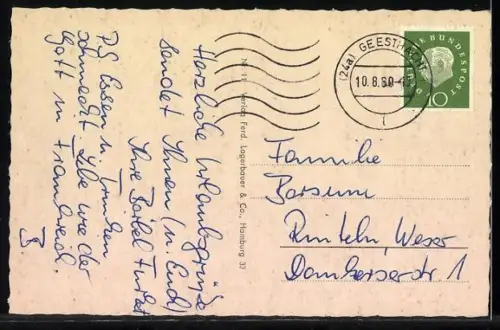 Herzliche Urlaubsgrüße
sendet Ihnen (u. Emil)
Ihre Bärbel
PS Essen u. Trinken
schmeckt, lebe wie der
Gott in Frankreich.
B.
Nr. 11 Verlag Ferd. Lagerbauer & Co., Hamburg 33
(24a) GEESTHACHT
10.8.60
DEUTSCHE BUNDESPOST
10
Familie
Rinteln, Weser
Dankerserstr. 1